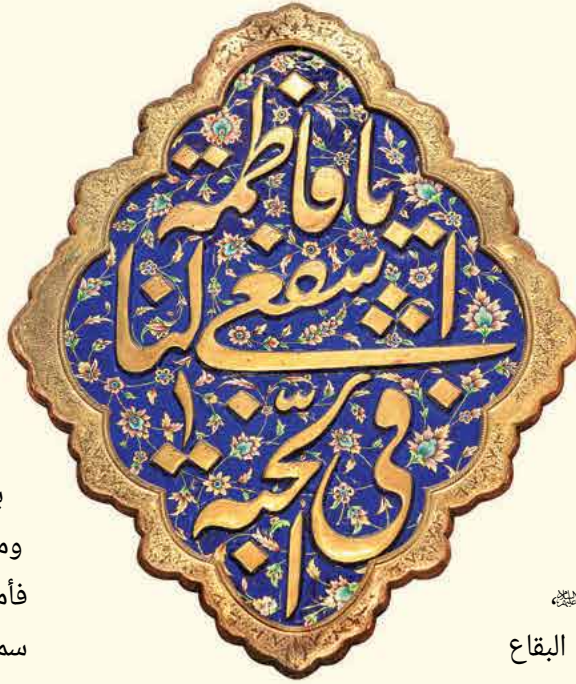 يا فاطمة
اشفعي لنا
في الجنة
البقاع